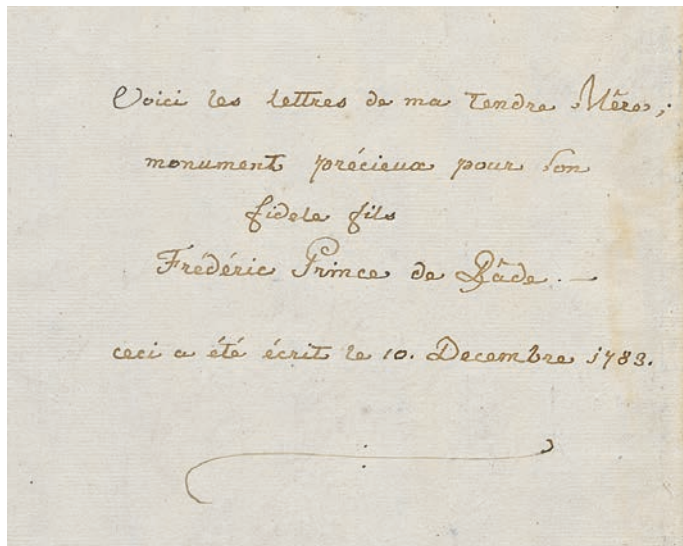 Voici les lettres de ma tendre Mêre,
monument précieux pour son
fidele fils
Frédéric Prince de Bâde. —
ceci a été écrit le 10. Decembre 1783.